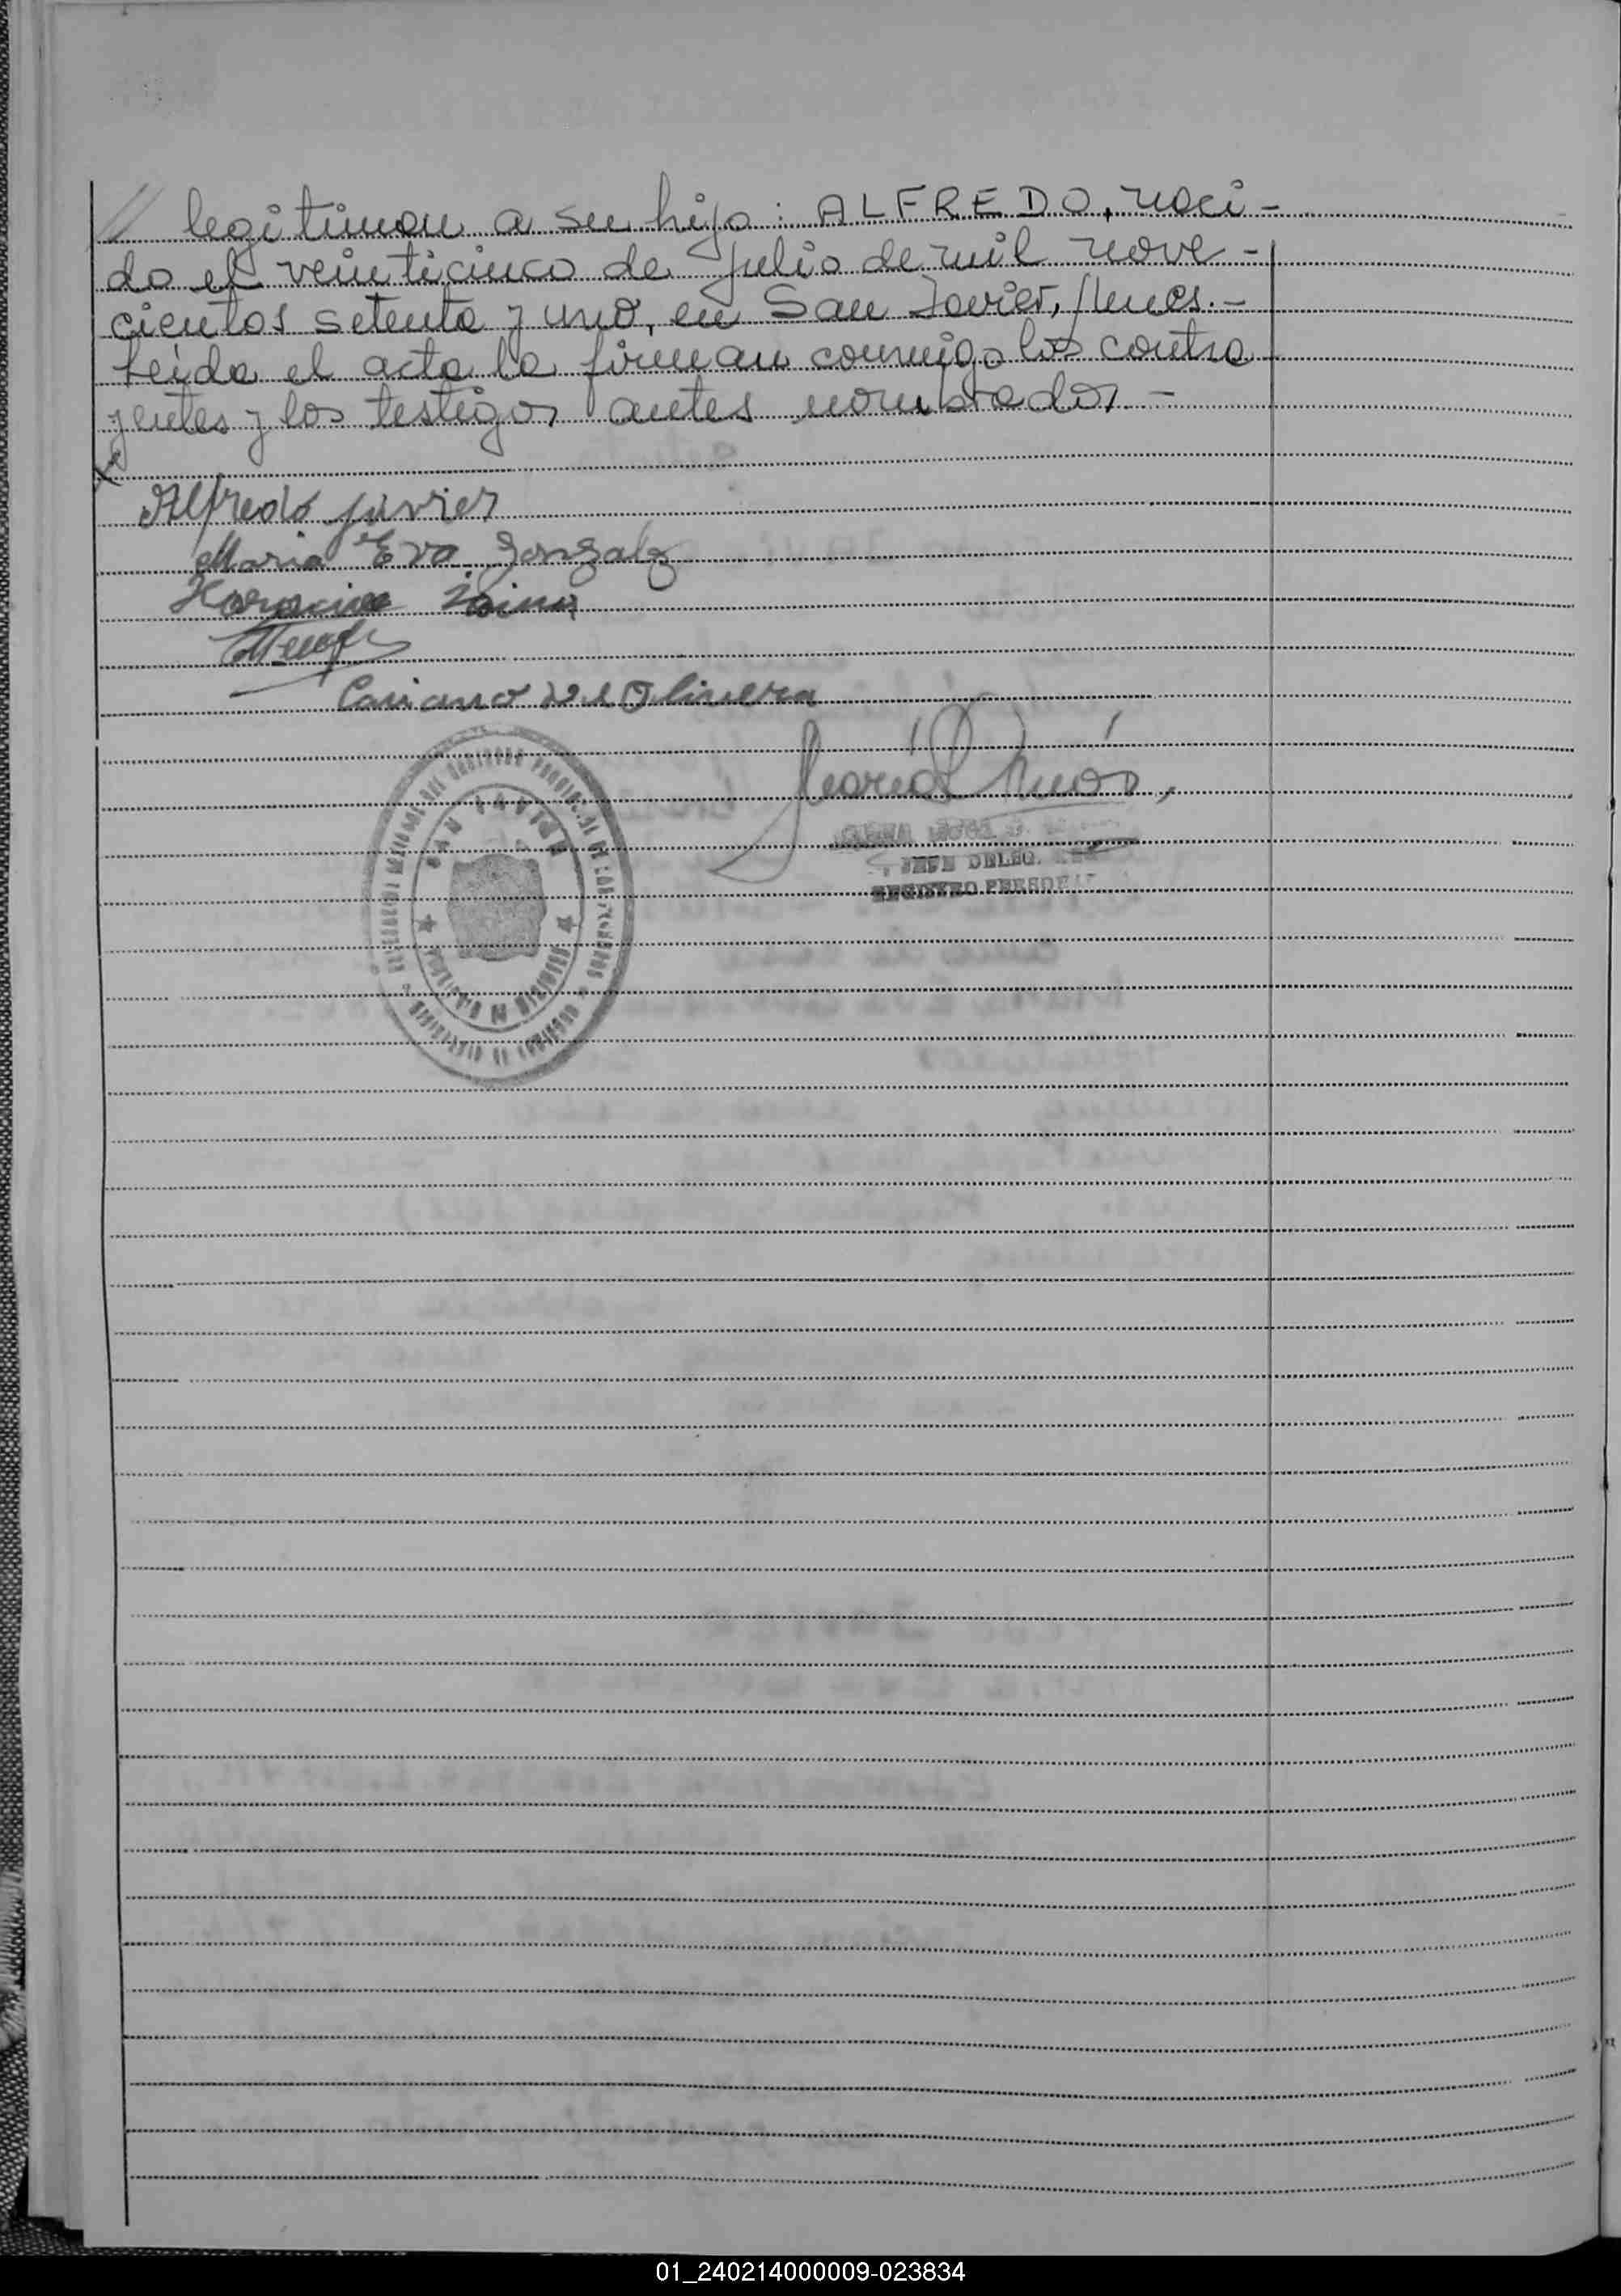 // legitiman a su hijo: ALFREDO, naci-
do el veinticinco de Julio de mil nove-
cientos setenta y uno, en San Javier, Mnes.-
Leida el acta la firman conmigo los contra
yentes y los testigos antes nombrados.-
Alfredo Javier
Maria Eva Gonzalz
de Olivera
SAN JAVIER
JEFE DELEG.
REGISTRO PERSONAS
01_240214000009-023834